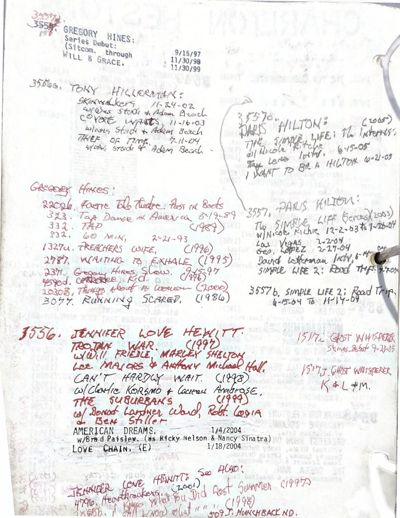 GREGORY HINES:
Series Debut: 9/15/97
(Sitcom. through 11/30/98
WILL & GRACE. 11/30/99
TONY HILLERMAN:
SKINWALKERS 11-24-02
w/Wes Studi & Adam Beach
COYOTE WAITS. 11-16-03
w/Wes Studi & Adam Beach
THIEF OF TIME. 7-11-04
w/Wes Studi & Adam Beach
3557a.
PARIS HILTON: (2005)
THE SIMPLE LIFE: The Interns.
w/ Nicole Richie 6-15-05
I WANT TO BE A HILTON 6-21-05
3557. PARIS HILTON:
The SIMPLE LIFE (2003)
w/ Nicole Richie 12-2-03 to
Las Vegas. 2-2-04
GEO. LOPEZ 2-27-04
David Letterman Intv.
SIMPLE LIFE 2: Road Trip.
3557b. SIMPLE LIFE 2: Road Trip.
GREGORY HINES:
Faerie Tale Theatre. Puss in Boots
323. Tap Dance in America 5-17-89
332. TAP (1989)
332. 60 MIN. 2-21-93
PREACHERS WIFE. (1996)
2787. WAITING TO EXHALE (1995)
237. Gregory Hines Show. 9-15-97
(1996)
(2000)
3077. RUNNING SCARED. (1986)
3556. JENNIFER LOVE HEWITT.
TROJAN WAR. (1997)
w/ Will FRIEDLE, MARLEY SHELTON
Lee MAJORS & Anthony Michael Hall.
CAN'T HARDLY WAIT. (1998)
w/ Charlie KORSMO & Lauren AMBROSE.
THE SUBURBANS (1999)
w/ Donal Lardner Ward, Robt. LOGGIA
& Ben Stiller
AMERICAN DREAMS. 1/4/2004
w/Brad Paisley. (as Ricky Nelson & Nancy Sinatra)
LOVE CHAIN. (E) 1/18/2004
1517. GHOST WHISPERER
Series Debut 9-23-05
1517. GHOST WHISPERER
K & L & M.
JENNIFER LOVE HEWITT: See ALSO:
4796. Heartbreakers. (2001)
I Know What You Did Last Summer (1997)
I Still Know (1998)
509J. HUNCHBACK ND.